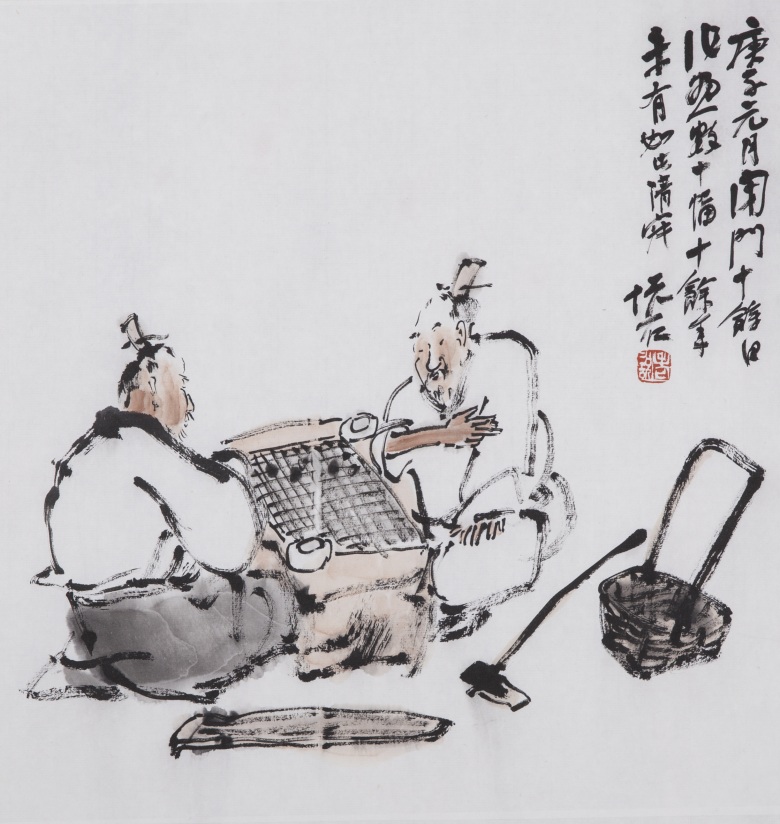 庚子元月闭門十餘日
作畫數十幅十餘年
未有如此清寂